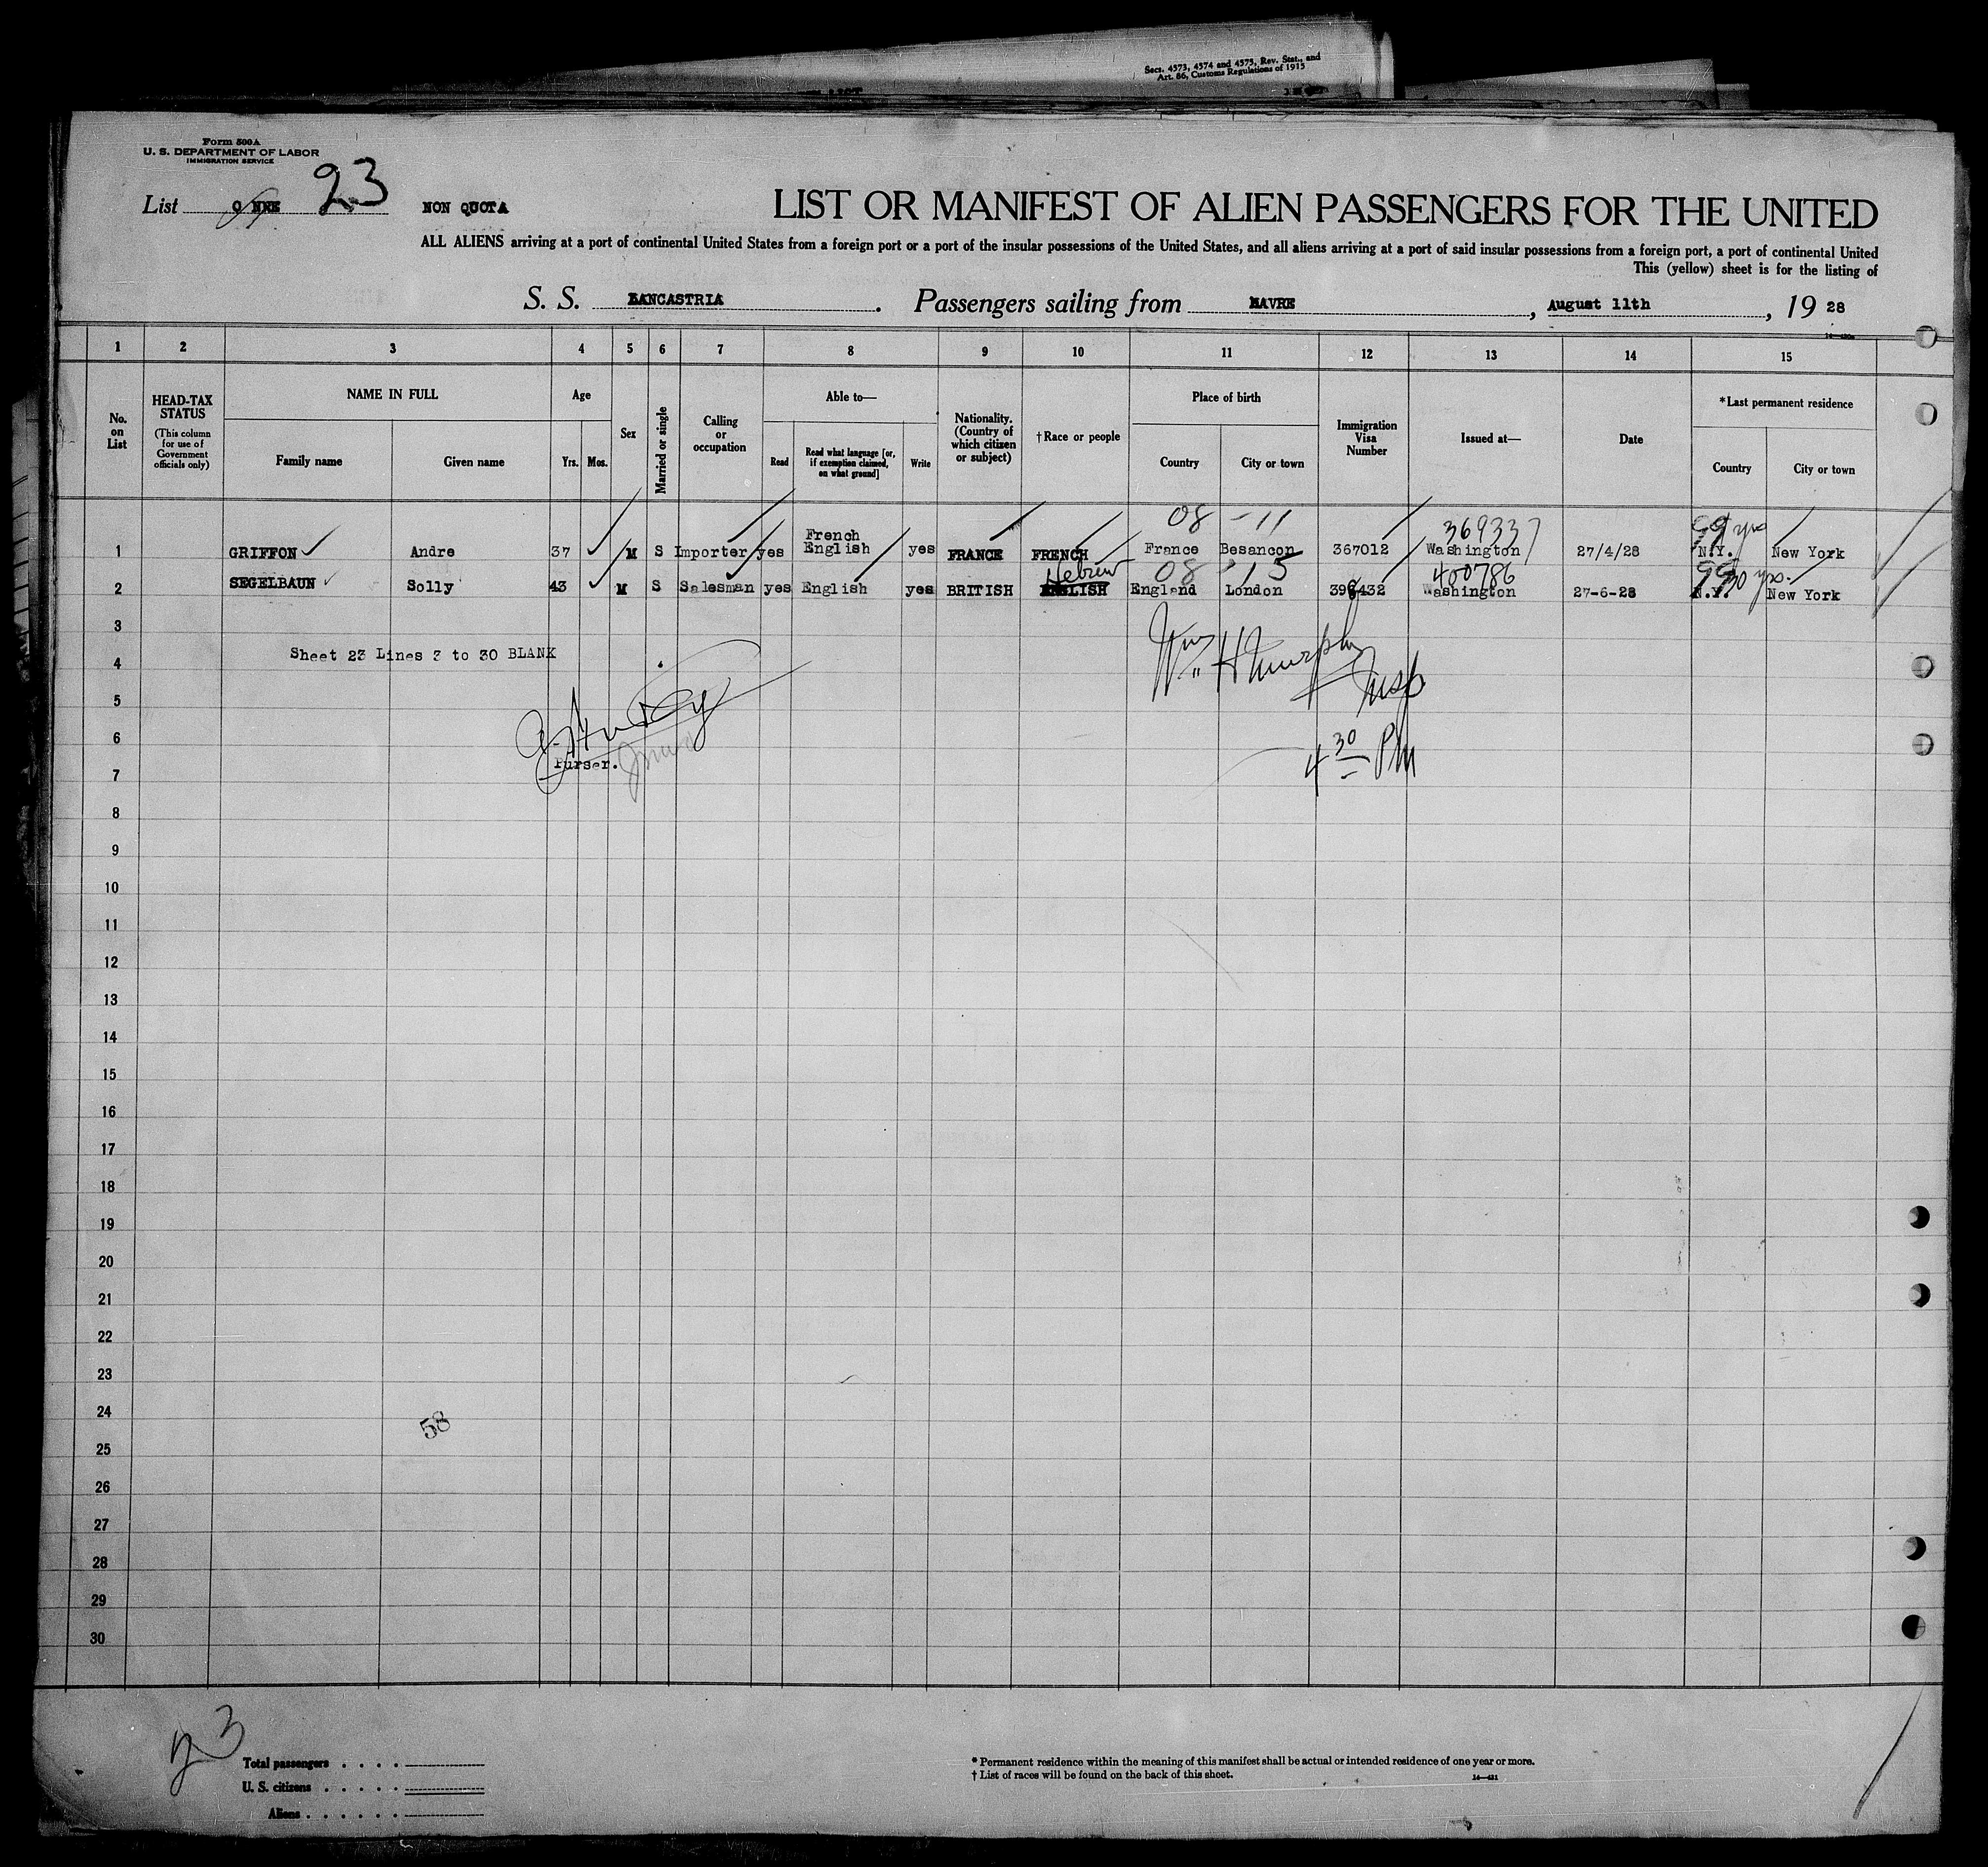 Secs. 4573, 4574 and 4575, Rev. Stat., and
Art. 86, Customs Regulations of 1915
Form 500A
U. S. DEPARTMENT OF LABOR
IMMIGRATION SERVICE
List 23 NON QUOTA
LIST OR MANIFEST OF ALIEN PASSENGERS FOR THE UNITED
ALL ALIENS arriving at a port of continental United States from a foreign port or a port of the insular possessions of the United States, and all aliens arriving at a port of said insular possessions from a foreign port, a port of continental United
This (yellow) sheet is for the listing of
S. S. LANCASTRIA. Passengers sailing from HAVRE, August 11th, 19 28
1 2 3 4 5 6 7 8 9 10 11 12 13 14 15
No. on List
HEAD-TAX STATUS
(This column for use of Government officials only)
NAME IN FULL
Family name Given name
Age
Yrs. Mos.
Sex
Married or single
Calling or occupation
Able to—
Read
Read what language [or, if exemption claimed, on what ground]
Write
Nationality. (Country of which citizen or subject)
†Race or people
Place of birth
Country City or town
Immigration Visa Number
Issued at—
Date
*Last permanent residence
Country City or town
08 - 11 369337 yrs
French
1 GRIFFON Andre 37 M S Importer yes English yes FRANCE FRENCH France Besancon 367012 Washington 27/4/28 N.Y. New York
Hebrew 08 15 400786 30 yrs.
2 SEGELBAUN Solly 43 M S Salesman yes English yes BRITISH ENGLISH England London 396432 Washington 27-6-28 N.Y. New York
3
Sheet 23 Lines 3 to 30 BLANK
Wm H Murphy
4
Insp
5
6
4 30 PM
Purser.
7
8
9
10
11
12
13
14
15
16
17
18
19
20
21
22
23
24
58
25
26
27
28
29
30
23
Total passengers . . . .
U. S. citizens . . . . .
Aliens . . . . . .
* Permanent residence within the meaning of this manifest shall be actual or intended residence of one year or more.
† List of races will be found on the back of this sheet.
14—431